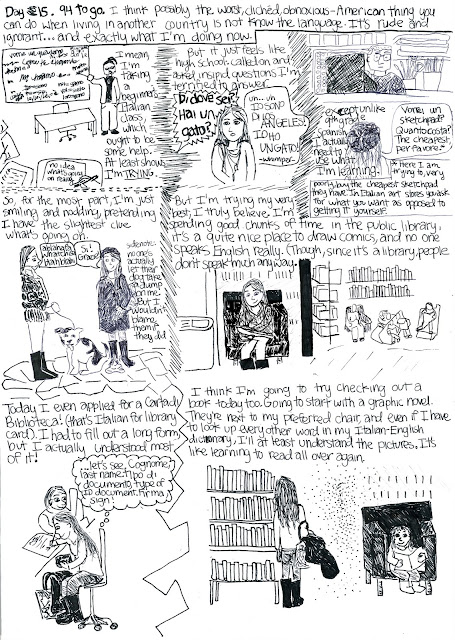 Day 15. 94 to go. I think possibly the worst, cliched, obnoxious-American thing you
can do when living in another country is not know the language. It's rude and
ignorant... and exactly what I'm doing now.
I mean,
I'm
taking
a
beginners
Italian
class,
which
ought to be
some help.
At least shows
I'm TRYING.
no idea
what's going
on really
But it just feels like
high school: called on and
asked insipid questions I'm
terrified to answer.
Di dove sei?
Hai un
gato?
un... uh
IO SONO
DI LOS
ANGELES!
IO HO
UN GATO!
-whimper-
except unlike
9th grade
Spanish,
I actually
need to
use what
I'm learning.
Vorrei, un
sketchpad?
Quanto costa?
The cheapest,
per favore.*
* here I am
trying to, very
poorly, buy the cheapest sketchpad
they have. In Italian art stores you ask
for what you want as opposed to
getting it yourself.
So, for the most part, I'm just
smiling and nodding, pretending
I have the slightest clue
what's going on.
Si!
Grazie!
sidenote:
no one's
actually
let their
dog take
a dump
on me.
But I
wouldn't
blame
them if
they did
But I'm trying my very
best, I truly believe. I'm
spending good chunks of time in the public library,
it's a quite nice place to draw comics, and no one
speaks English really. (Though, since it's a library, people
don't speak much anyway.)
Today I even applied for a Carta di
Biblioteca! (that's Italian for library
card). I had to fill out a long form
but I actually understood most
of it!
let's see, Cognome,
last name. Tipo di
documento, type of
ID document. Firma,
sign!
I think I'm going to try checking out a
book today too. Going to start with a graphic novel.
They're next to my preferred chair, and even if I have
to look up every other word in my Italian-English
dictionary, I'll at least understand the pictures. It's
like learning to read all over again.